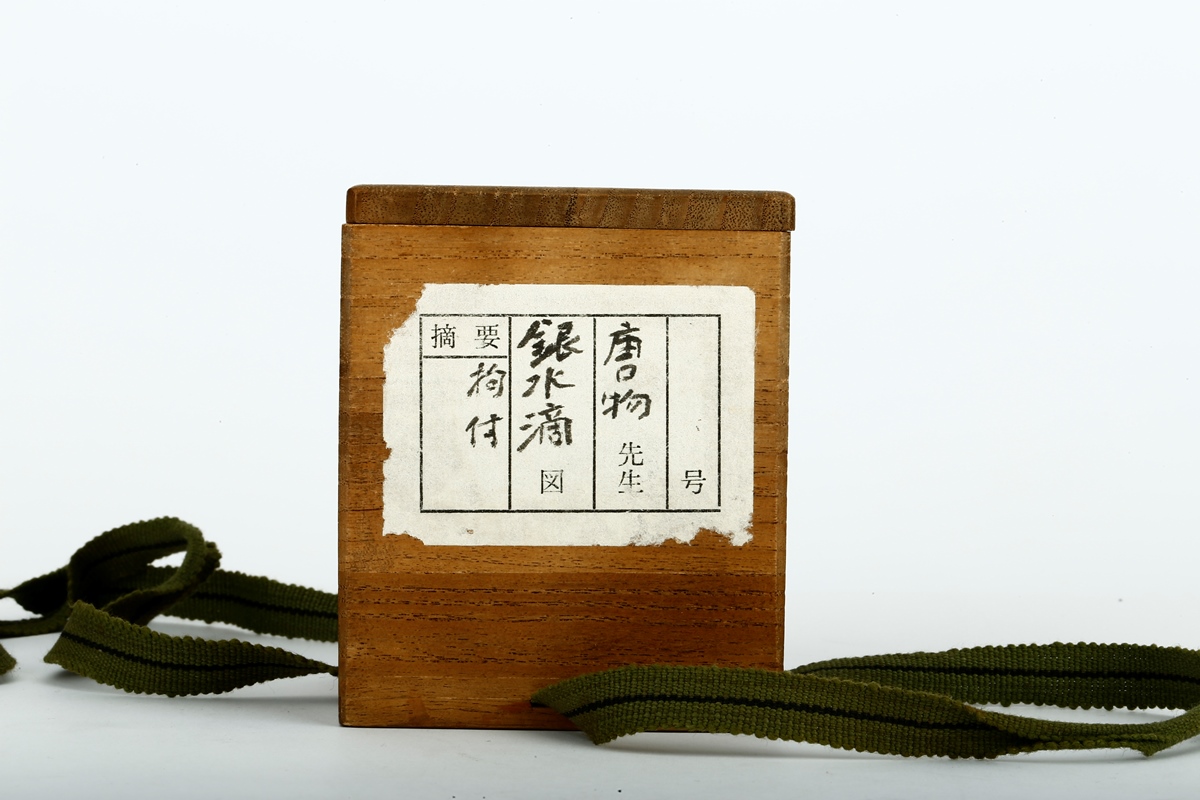 号
唐物先生
銀水滴図
摘要
付